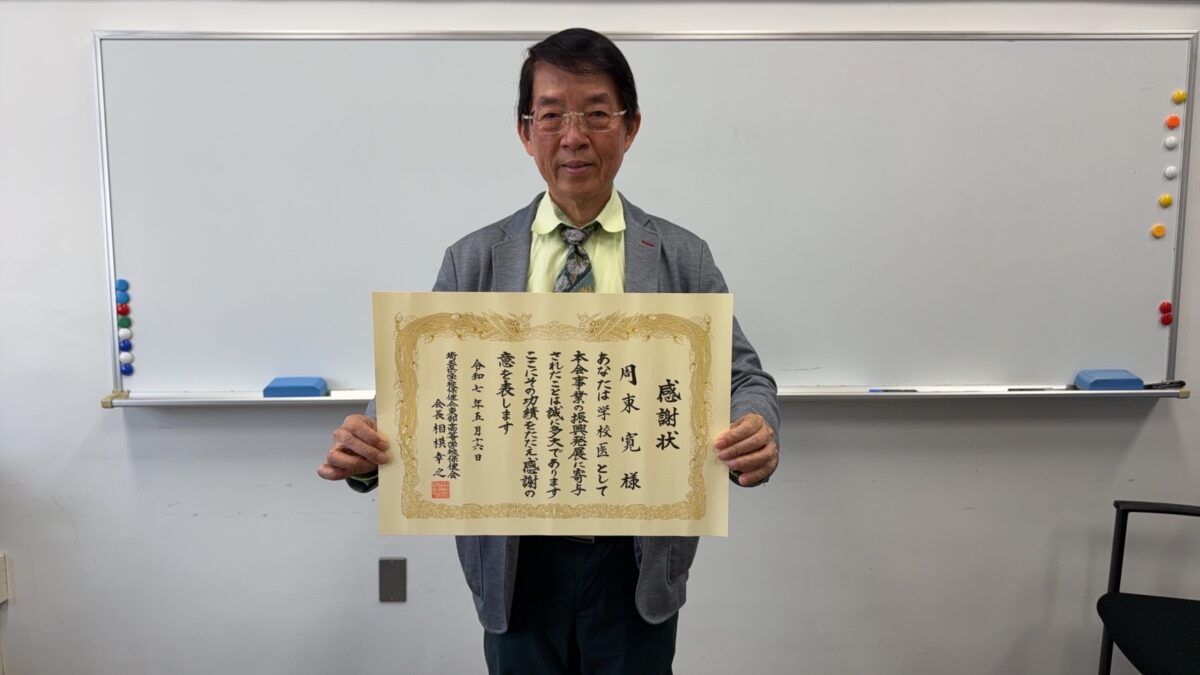 感謝状
周東寛様
あなたは学校医として
本会事業の振興発展に寄与
されたことは誠に多大であります
ここにその功績をたたえ感謝の
意を表します
令和七年五月十六日
埼玉県学校保健会東部高等学校保健会
会長相模幸之